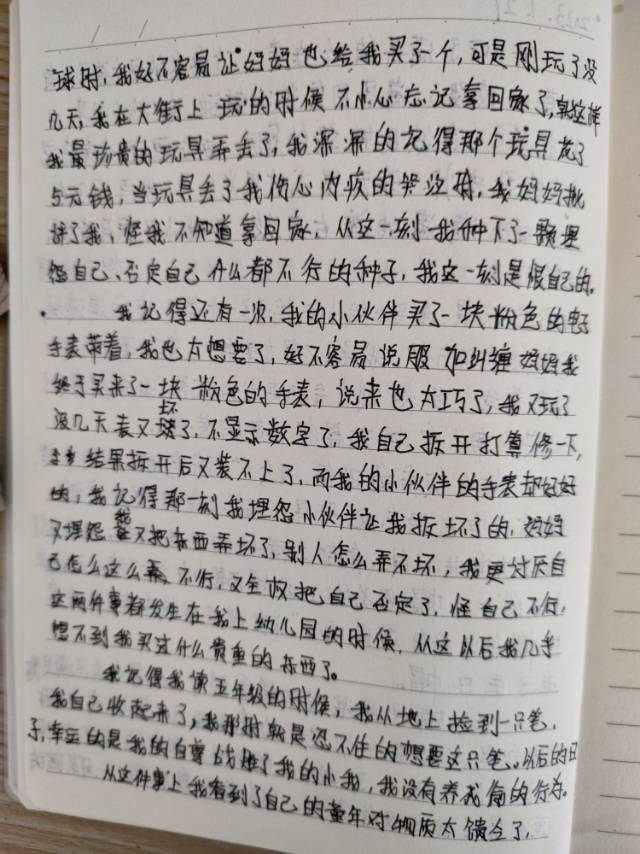 球时,我好不容易让妈妈也给我买了一个,可是刚玩了没
几天,我在大街上玩的时候不小心忘记拿回家了,就这样
我最珍贵的玩具弄丢了,我深深的记得那个玩具花了
5元钱,当玩具丢了我伤心内疚的哭没时,我妈妈批
评了我,怪我不知道拿回家,从这一刻我种下了一颗埋
怨自己、否定自己什么都不行的种子,我这一刻是恨自己的。
我记得还有一次,我的小伙伴买了一块粉色的电子
手表带着,我也太想要了,好不容易说服加纠缠妈妈我
终于买来了一块粉色的手表,说来也太巧了,我又玩了
没几天表又坏了,不显示数字了,我自己拆开打算修一下,
结果拆开后又装不上了,而我的小伙伴的手表却好好
的,我记得那一刻我埋怨小伙伴让我拆坏了的,妈妈
又埋怨我又把东西弄坏了,别人怎么弄不坏,我更讨厌自
己怎么这么弄,不行,又全权把自己否定了,怪自己不行,
这两件事都发生在我上幼儿园的时候,从这以后我几乎
想不到我买过什么贵重的东西了。
我记得我读五年级的时候,我从地上捡到一只笔,
我自己收起来了,我那时就是忍不住的想要这只笔。以后的日
子,幸运的是我的自尊战胜了我的小我,我没有养成偷的行为。
从这件事上我看到了自己的童年对物质太馈乏了,